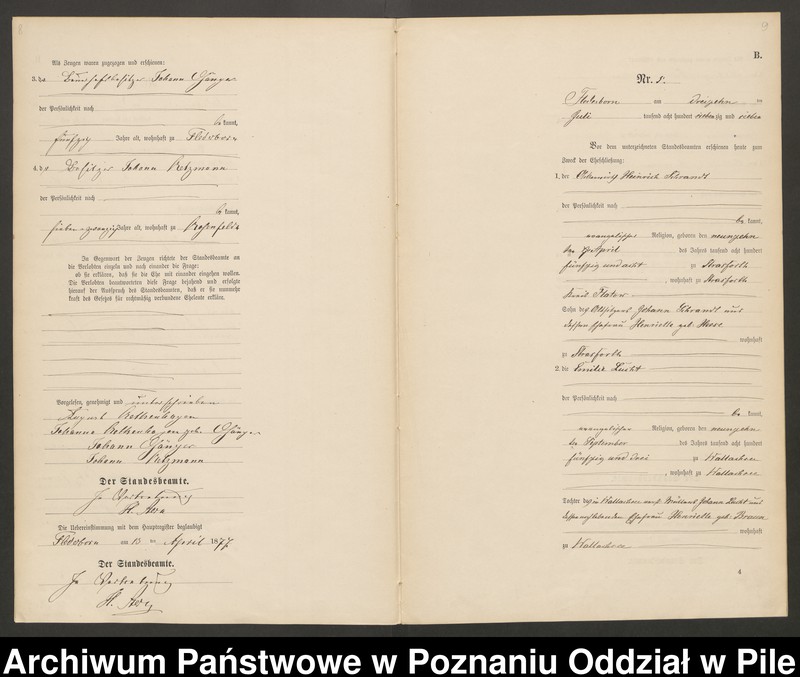 8
Als Zeugen waren zugezogen und erschienen:
3. der Johann Gänger
der Persönlichkeit nach
be kannt,
fünfzig Jahre alt, wohnhaft zu Flederborn
4. der Besitzer Johann Retzmann
der Persönlichkeit nach
be kannt,
Jahre alt, wohnhaft zu
In Gegenwart der Zeugen richtete der Standesbeamte an
die Verlobten einzeln und nach einander die Frage:
ob sie erklären, daß sie die Ehe mit einander eingehen wollen.
Die Verlobten beantworteten diese Frage bejahend und erfolgte
hierauf der Ausspruch des Standesbeamten, daß er sie nunmehr
kraft des Gesetzes für rechtmäßig verbundene Eheleute erkläre.
Vorgelesen, genehmigt und unterschrieben
August
Johanna geb. Gänger
Johann Gänger
Johann Retzmann
Der Standesbeamte.
In Vertretung
Die Uebereinstimmung mit dem Hauptregister beglaubigt
Flederborn am 13 ten April 1877
Der Standesbeamte.
In Vertretung
9
B.
Nr. 5.
Flederborn am dreizehn ten
Juli tausend acht hundert siebenzig und sieben
Vor dem unterzeichneten Standesbeamten erschienen heute zum
Zweck der Eheschließung:
1. der Heinrich Schrandt
der Persönlichkeit nach
be kannt,
evangelischer Religion, geboren den neunzehn
ten April des Jahres tausend acht hundert
fünfzig und acht zu Strasforth
, wohnhaft zu Strasforth
Kreis Flatow
Sohn des Altsitzers Johann Schrandt und
dessen Ehefrau Henriette geb.
wohnhaft
zu Strasforth
2. die Emilie Lucht
der Persönlichkeit nach
be kannt,
evangelischer Religion, geboren den neunzehn
ten September des Jahres tausend acht hundert
fünfzig und drei zu Wallachsee
, wohnhaft zu Wallachsee
Tochter des in Wallachsee Johann Lucht und
Ehefrau Henriette geb.
wohnhaft
zu Wallachsee
4
Archiwum Państwowe w Poznaniu Oddział w Pile